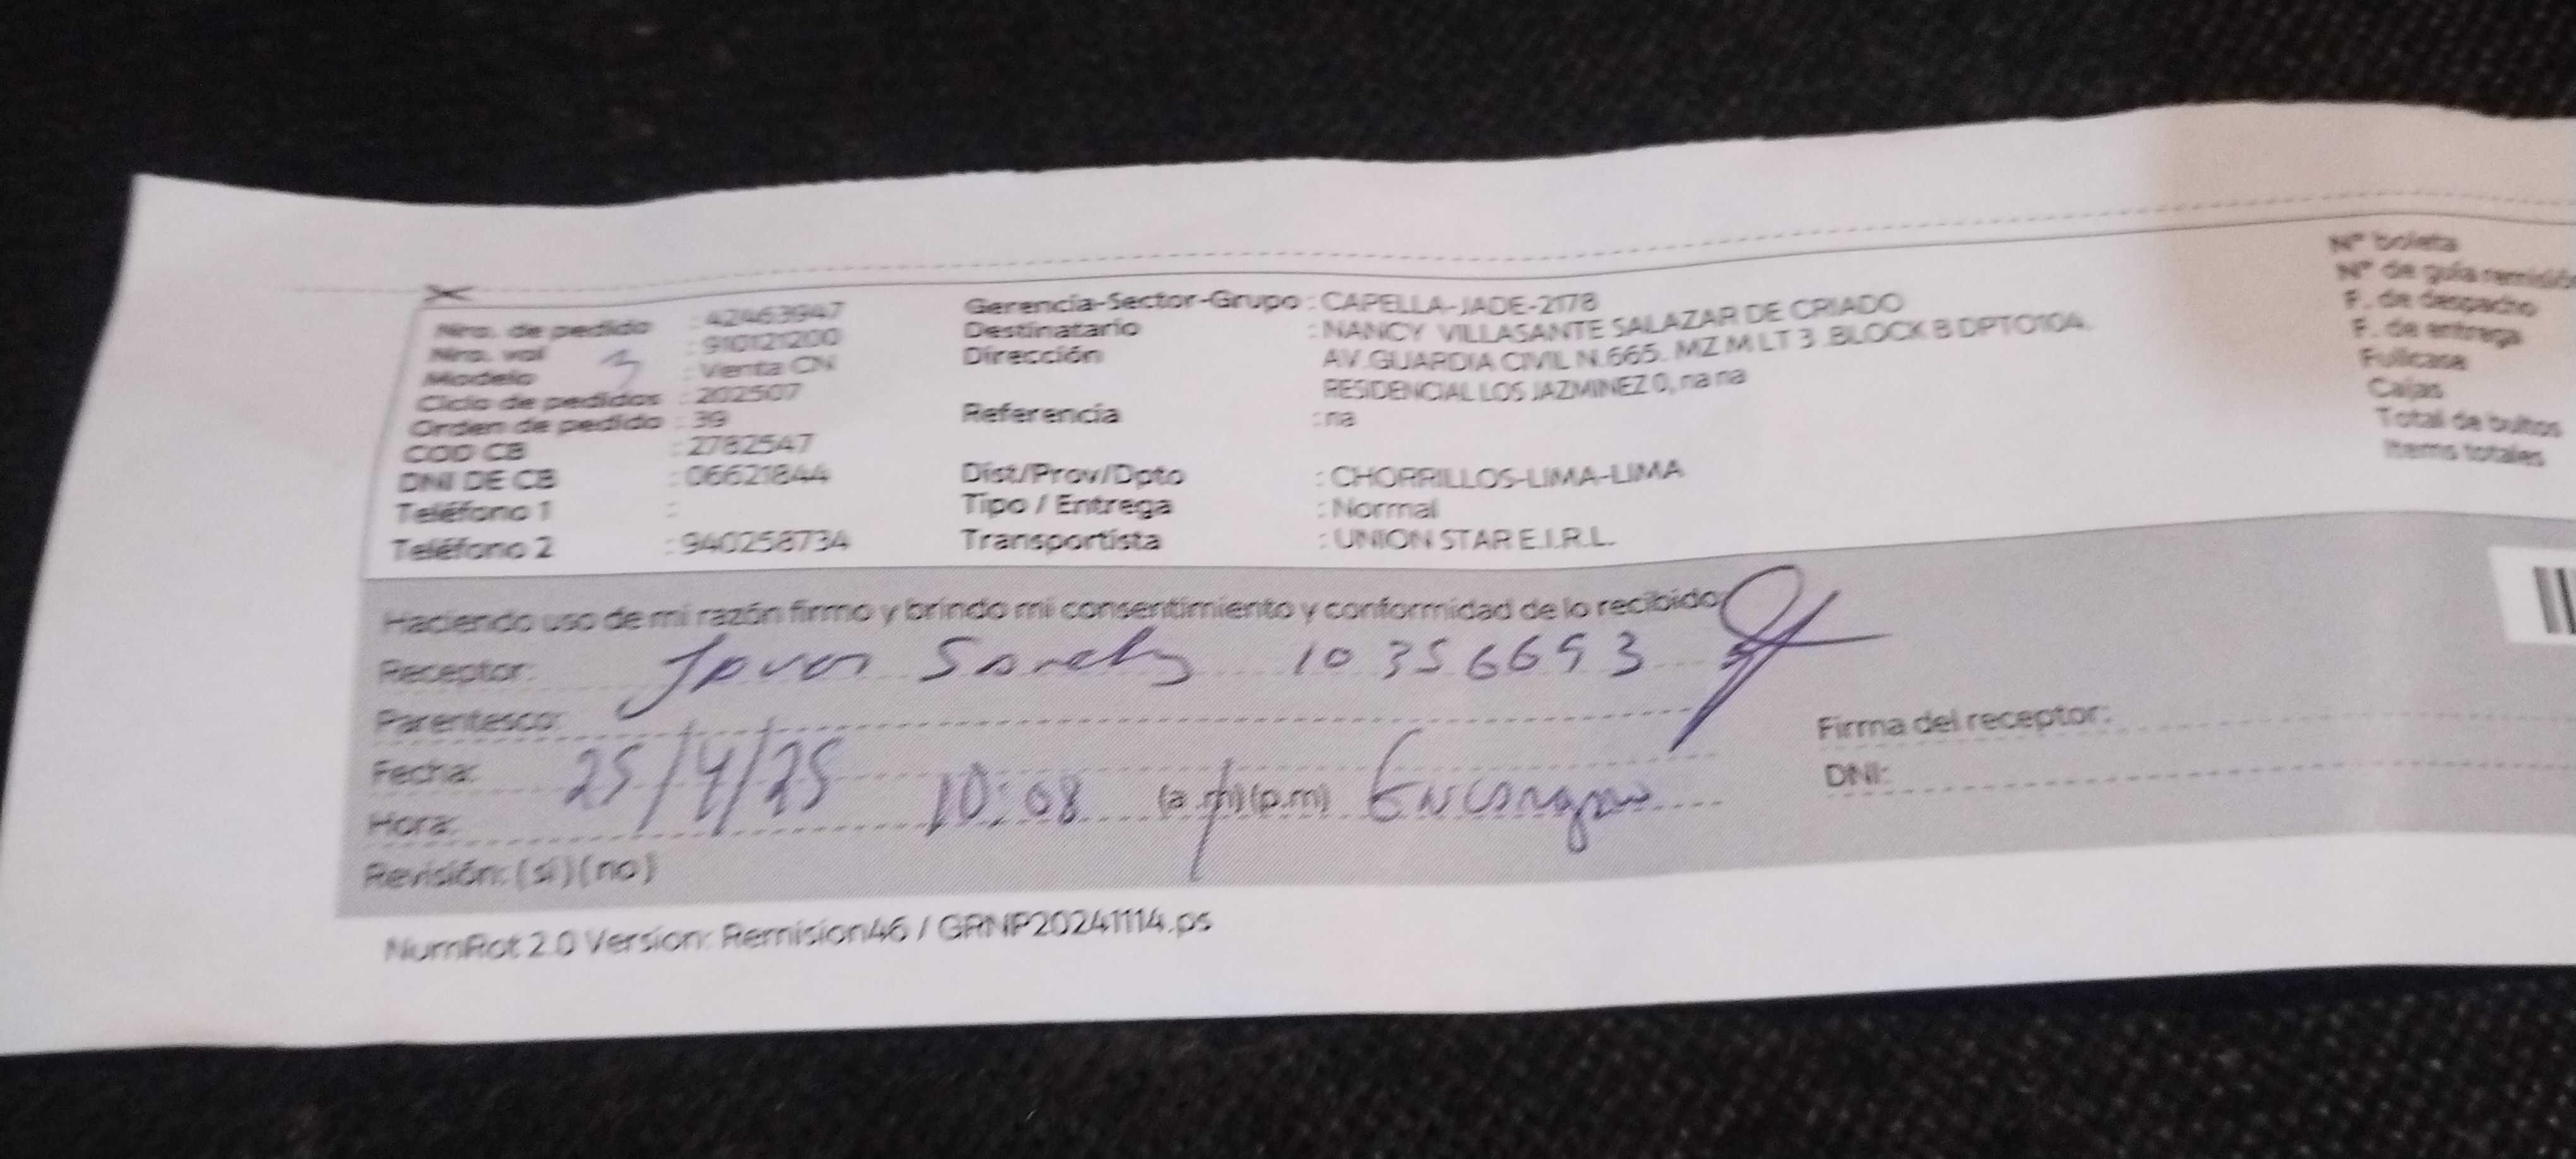 Nro. de pedido : 42463947
Nro. val : 910121200
Modelo 3 : Venta CN
Ciclo de pedidos : 202507
Orden de pedido : 39
COD CB : 2782547
DNI DE CB : 06621844
Teléfono 1 :
Teléfono 2 : 940258734
Gerencia-Sector-Grupo : CAPELLA-JADE-2178
Destinatario : NANCY VILLASANTE SALAZAR DE CRIADO
Dirección AV.GUARDIA CIVIL N.665. MZ M LT 3 .BLOCK B DPTO104.
RESIDENCIAL LOS JAZMINEZ 0, na na
Referencia : na
Dist/Prov/Dpto : CHORRILLOS-LIMA-LIMA
Tipo / Entrega : Normal
Transportista : UNION STAR E.I.R.L.
N° boleta
N° de guía remisió
F. de despacho
F. de entrega
Fullcase
Cajas
Total de bultos
Items totales
Haciendo uso de mi razón firmo y brindo mi consentimiento y conformidad de lo recibido
Receptor: 10356693
Parentesco:
Fecha: 25/4/25
Hora: 10:08 (a.m)(p.m)
Revisión: (si) (no)
Firma del receptor:
DNI:
NumRot 2.0 Version: Remision46 / GRNP20241114.ps